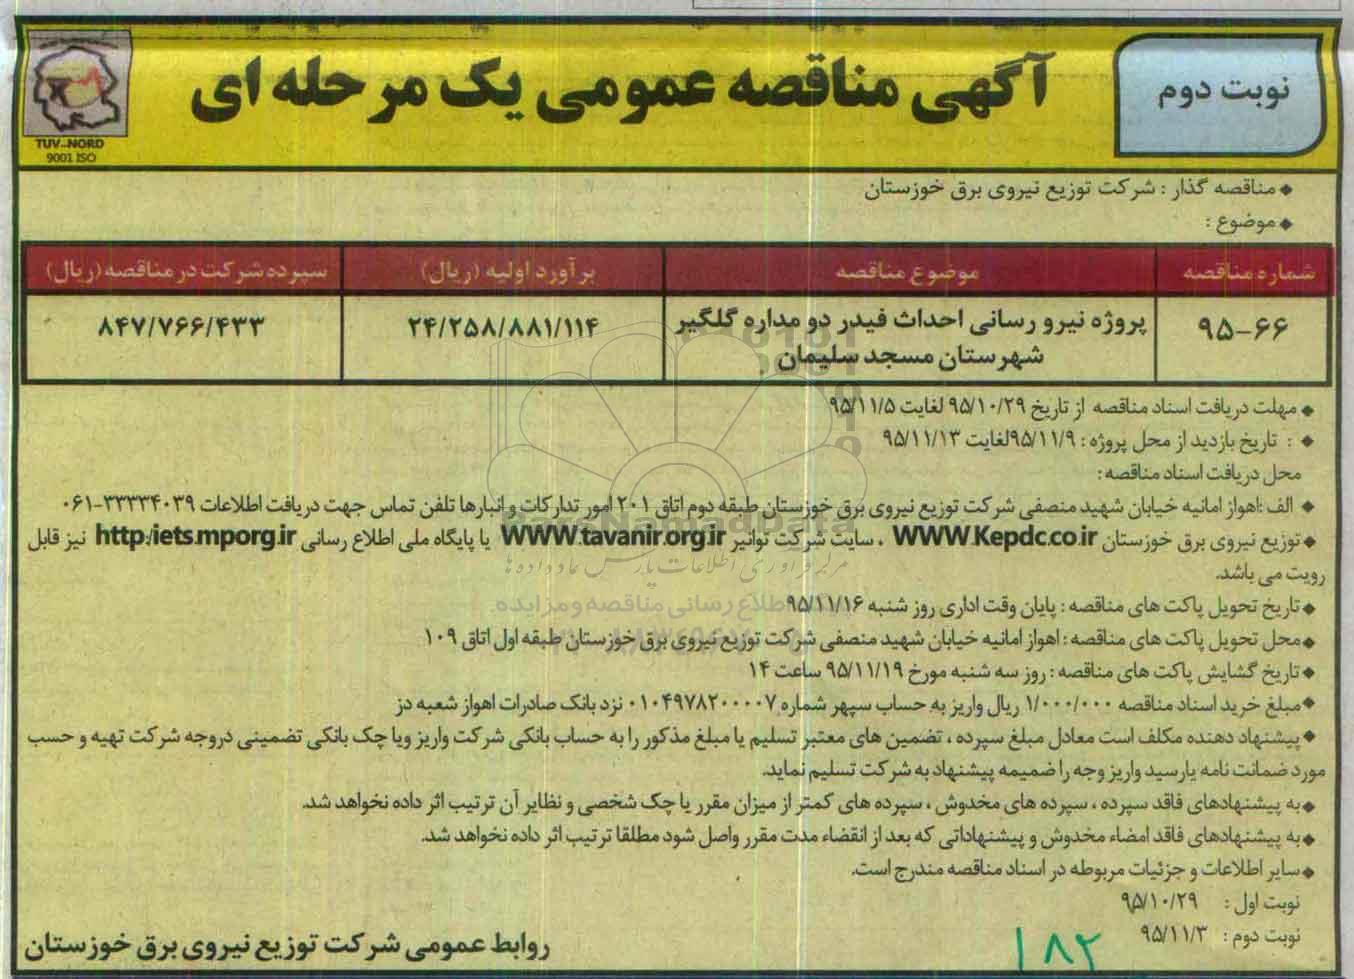 نوبت دوم
آگهی مناقصه عمومی یک مرحله ای
TUV-NORD
9001 ISO
♦ مناقصه گذار : شرکت توزیع نیروی برق خوزستان
♦ موضوع :
شماره مناقصه موضوع مناقصه برآورد اولیه (ریال) سپرده شرکت در مناقصه (ریال)
۹۵-۶۶ پروژه نیرو رسانی احداث فیدر دو مداره گلگیر شهرستان مسجد سلیمان ۲۴/۲۵۸/۸۸۱/۱۱۴ ۸۴۷/۷۶۶/۴۳۳
♦ مهلت دریافت اسناد مناقصه از تاریخ ۹۵/۱۰/۲۹ لغایت ۹۵/۱۱/۵
♦ : تاریخ بازدید از محل پروژه : ۹۵/۱۱/۹لغایت ۹۵/۱۱/۱۳
محل دریافت اسناد مناقصه:
♦ الف :اهواز امانیه خیابان شهید منصفی شرکت توزیع نیروی برق خوزستان طبقه دوم اتاق ۲۰۱ امور تدارکات و انبارها تلفن تماس جهت دریافت اطلاعات ۳۳۳۳۴۰۳۹-۰۶۱
♦ توزیع نیروی برق خوزستان WWW.Kepdc.co.ir ، سایت شرکت توانیر WWW.tavanir.org.ir یا پایگاه ملی اطلاع رسانی http:/iets.mporg.ir نیز قابل
رویت می باشد.
♦ تاریخ تحویل پاکت های مناقصه : پایان وقت اداری روز شنبه ۹۵/۱۱/۱۶
♦ محل تحویل پاکت های مناقصه : اهواز امانیه خیابان شهید منصفی شرکت توزیع نیروی برق خوزستان طبقه اول اتاق ۱۰۹
♦ تاریخ گشایش پاکت های مناقصه : روز سه شنبه مورخ ۹۵/۱۱/۱۹ ساعت ۱۴
♦ مبلغ خرید اسناد مناقصه ۱/۰۰۰/۰۰۰ ریال واریز به حساب سپهر شماره ۰۱۰۴۹۷۸۲۰۰۰۰۷ نزد بانک صادرات اهواز شعبه دز
♦ پیشنهاد دهنده مکلف است معادل مبلغ سپرده ، تضمین های معتبر تسلیم یا مبلغ مذکور را به حساب بانکی شرکت واریز ویا چک بانکی تضمینی دروجه شرکت تهیه و حسب
مورد ضمانت نامه یارسید واریز وجه را ضمیمه پیشنهاد به شرکت تسلیم نماید.
♦ به پیشنهادهای فاقد سپرده ، سپرده های مخدوش ، سپرده های کمتر از میزان مقرر یا چک شخصی و نظایر آن ترتیب اثر داده نخواهد شد.
♦ به پیشنهادهای فاقد امضاء مخدوش و پیشنهاداتی که بعد از انقضاء مدت مقرر واصل شود مطلقا ترتیب اثر داده نخواهد شد.
♦ سایر اطلاعات و جزئیات مربوطه در اسناد مناقصه مندرج است.
نوبت اول : ۹۵/۱۰/۲۹
نوبت دوم : ۹۵/۱۱/۳
۱۸۲
روابط عمومی شرکت توزیع نیروی برق خوزستان